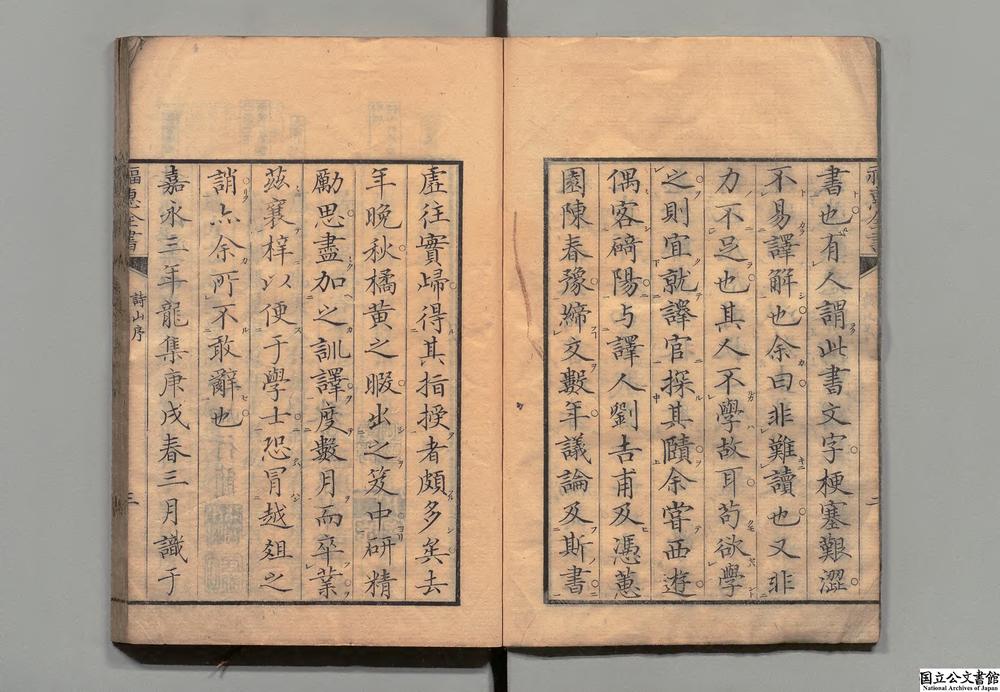 書也有人謂此書文字梗塞艱澀
不易譯解也余曰非難讀也又非
力不足也其人不學故耳苟欲學
之則宜就譯官探其賾余嘗西遊
偶客碕陽与譯人劉吉甫及馮蕙
園陳春豫締文數年議論及斯書
二
虛往實歸得其指授者頗多矣去
年晚秋橘黄之暇出之笈中研精
勵思盡加之訓譯度數月而卒業
茲襄梓以便于學士恐冒越爼之
誚亦余所不敢辭也
嘉永三年龍集庚戌春三月識于
福惠全書
詩山序
三
国立公文書館
National Archives of Japan